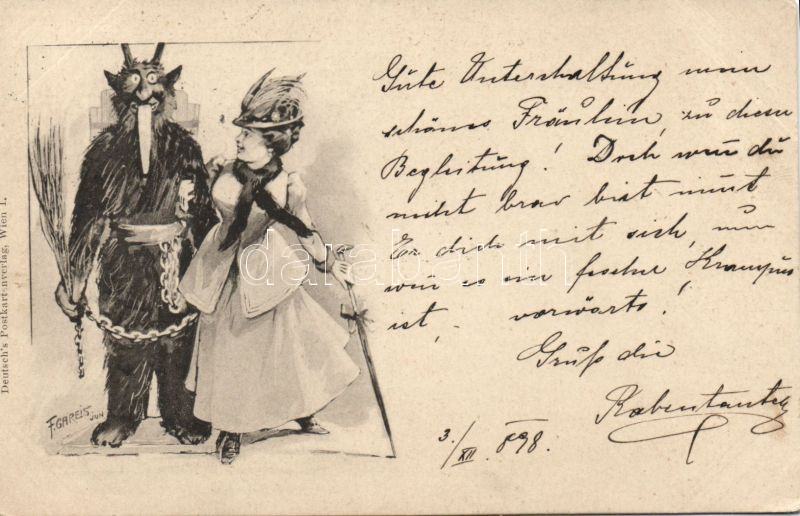 Gute Unterhaltung mein
schönes Fräulein, zu dieser
Begleitung! Doch wenn du
nicht brav bist nimt
Er dich mit sich, nun
wen es ein fescher Krampus
ist, vorwärts!
Gruß die
Rabentante
3./XII. 898.
F. GAREIS
JUN
Deutsch's Postkartenverlag, Wien I.
darabanth